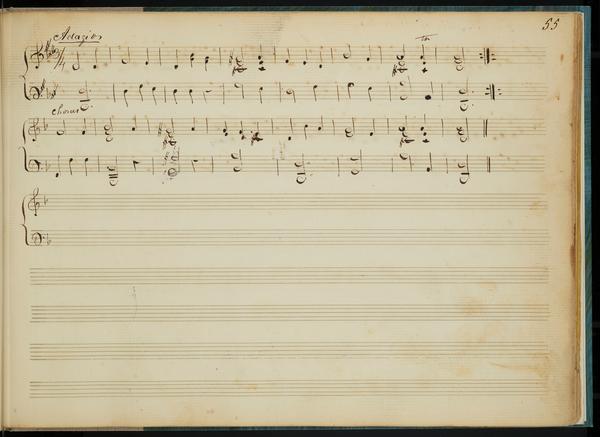 55
Adagios
Chorus